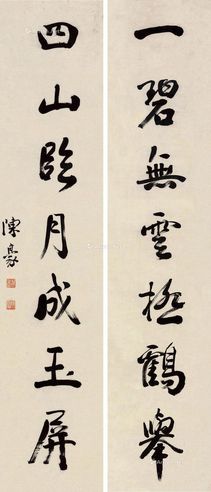 一碧無雲極鶴舉
四山臨月成玉屏
陳豪